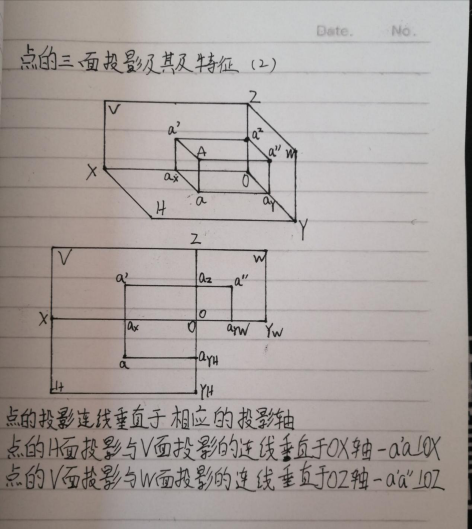 Date. No.
点的三面投影及其及特征（2）
V Z
a' az
A a'' W
X ax O
a aY
H Y
Z
V W
a' az a''
X ax O O aYW YW
a aYH
H YH
点的投影连线垂直于相应的投影轴
点的H面投影与V面投影的连线垂直于OX轴-a'a⊥OX
点的V面投影与W面投影的连线垂直于OZ轴-a'a''⊥OZ